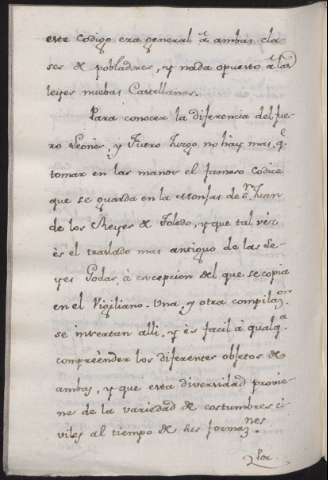 este Codigo era general â ambas cla
ses de pobladres, y nada opuesto â las
leyes nuebas Castellanas.
Para conocer la diferencia del fue
ro Leones, y Fuero Juzgo no hay mas, q.e
tomar en las manos el famoso Codice
que se guarda en la estonsas de S.n Juan
de los Reyes de Toledo, y que tal véz
ès el traslado mas antiguo de las Le-
yes Godas, à excepcion del que se copia
en el Vigiliano. Una, y otra compilaz.on
se insertan alli, y ès facil â qualq.a
compreender los diferentes objetos de
ambas, y que esta diversidad provie-
ne de la variedad de costumbres ci-
viles al tiempo de sus formaz.nes